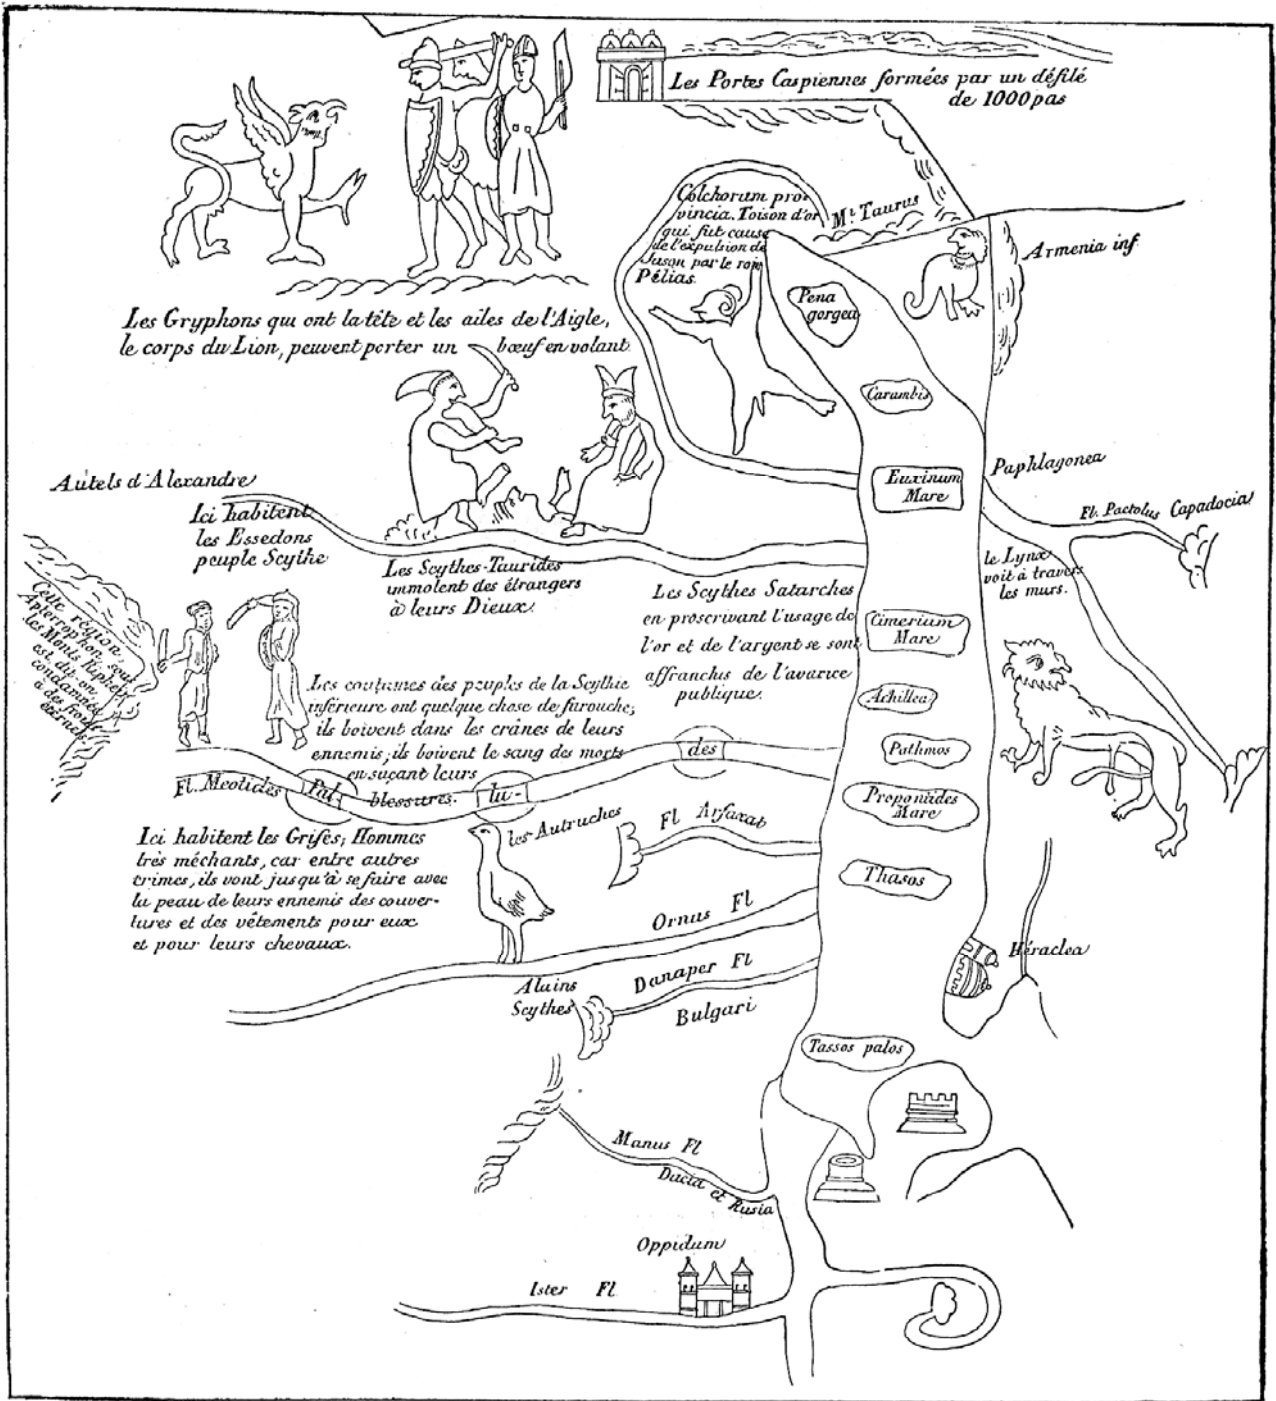 Les Portes Caspiennes formées par un défilé
de 1000 pas
Colchorum pro-
vincia. Toison d'or
qui fut cause
de l'expulsion de
Jason par le roi
Pélias.
Mt. Taurus
Armenia inf.
Pena
gorgea
Les Gryphons qui ont la tête et les ailes de l'Aigle,
le corps du Lion, peuvent porter un bœuf en volant.
Carambis
Autels d'Alexandre
Ici habitent
les Essedons
peuple Scythe
Euxinum
Mare
Paphlagonea
Fl. Pactolus Capadocia
Les Scythes-Taurides
immolent des étrangers
à leurs Dieux.
le Lynx
voit à travers
les murs.
Les Scythes Satarches
en proscrivant l'usage de
l'or et de l'argent se sont
affranchis de l'avarice
publique.
Cimerium
Mare
Cette région,
Apterrophon, sous
les Monts Riphées
est, dit-on,
condamnée
à des froids
éternels
Les coutumes des peuples de la Scythie
inférieure ont quelque chose de farouche;
ils boivent dans les crânes de leurs
ennemis; ils boivent le sang des morts
en suçant leurs
blessures.
Achillea
Pathmos
Fl. Meotides
Pal
lu-
des
Propontides
Mare
les Autruches
Fl Arfaxat
Ici habitent les Grifes; Hommes
très méchants, car entre autres
crimes, ils vont jusqu'à se faire avec
la peau de leurs ennemis des couver-
tures et des vêtements pour eux
et pour leurs chevaux.
Thasos
Ornus Fl
Héraclea
Danaper Fl
Alains
Scythes
Bulgari
Tassos palos
Manus Fl
Dacia et Rusia
Oppidum
Ister Fl